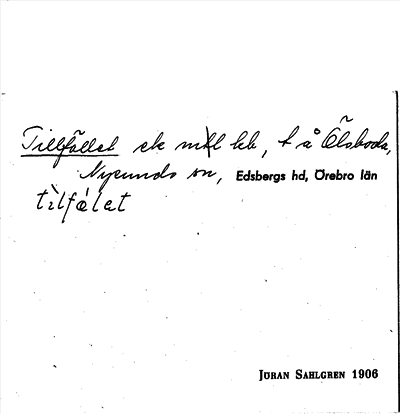 Tillfället sk mll kk, t å Ölsboda,
Nysunds sn, Edsbergs hd, Örebro län
tìlfálet
JÖRAN SAHLGREN 1906